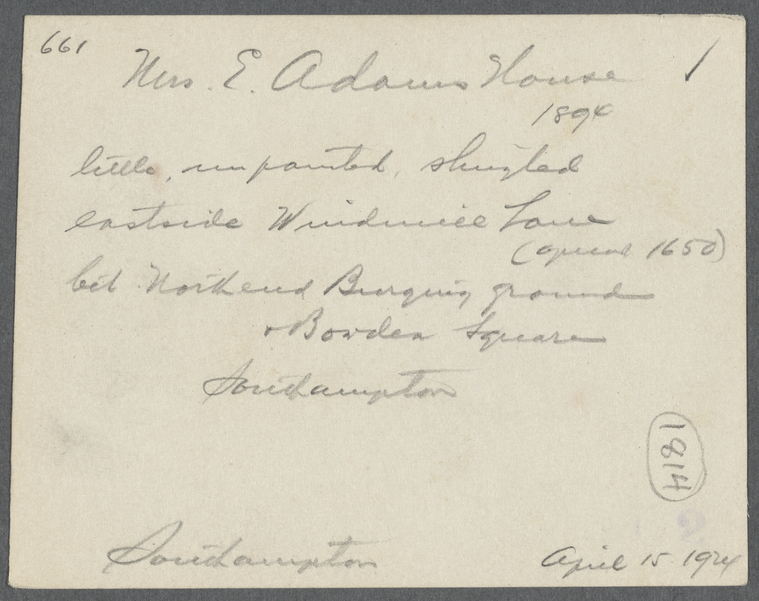 661
Mrs. E. Adams House
1894
little, unpainted, shingled
eastside Windmill Lane
(opened 1650)
bet Northend Burying ground
& Bowden Square
Southampton
1814
Southampton
April 15 1924